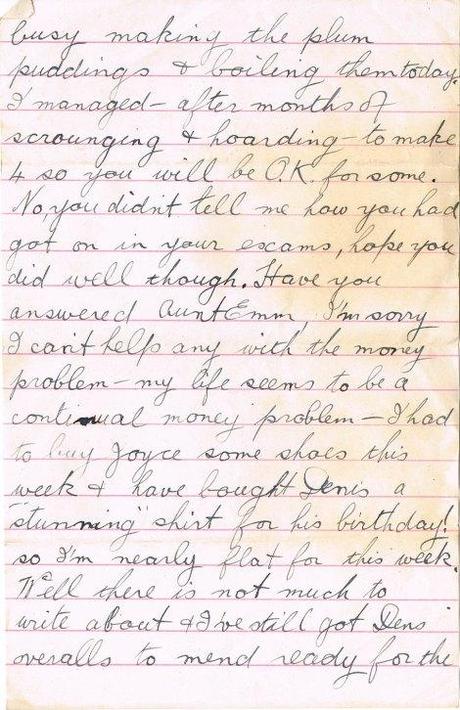 busy making the plum
puddings & boiling them today.
I managed - after months of
scrounging & hoarding - to make
4 so you will be O.K. for some.
No, you didn't tell me how you had
got on in your escams, hope you
did well though. Have you
answered Aunt Emm, I'm sorry
I can't help any with the money
problem - my life seems to be a
continual money problem - I had
to buy Joyce some shoes this
week & have bought Denis a
"stunning" shirt for his birthday!
so I'm nearly flat for this week.
Well there is not much to
write about & I've still got Dens'
overalls to mend ready for the